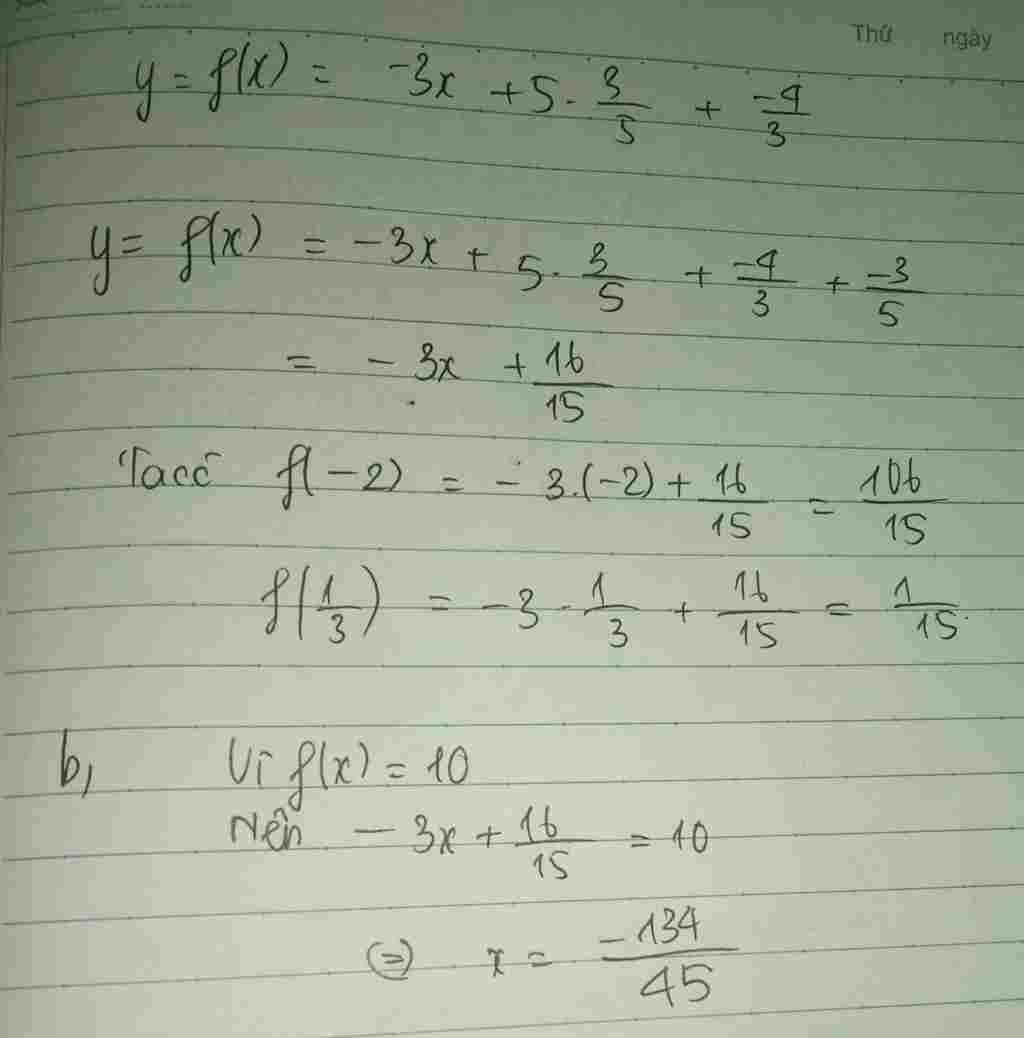 Thứ ngày
y = f(x) = -3x + 5 . 3/5 + -4/3
y = f(x) = -3x + 5 . 3/5 + -4/3 + -3/5
= -3x + 16/15
Ta có f(-2) = -3.(-2) + 16/15 = 106/15
f(1/3) = -3 . 1/3 + 16/15 = 1/15
b, Vì f(x) = 10
Nên -3x + 16/15 = 10
(=) x = -134/45